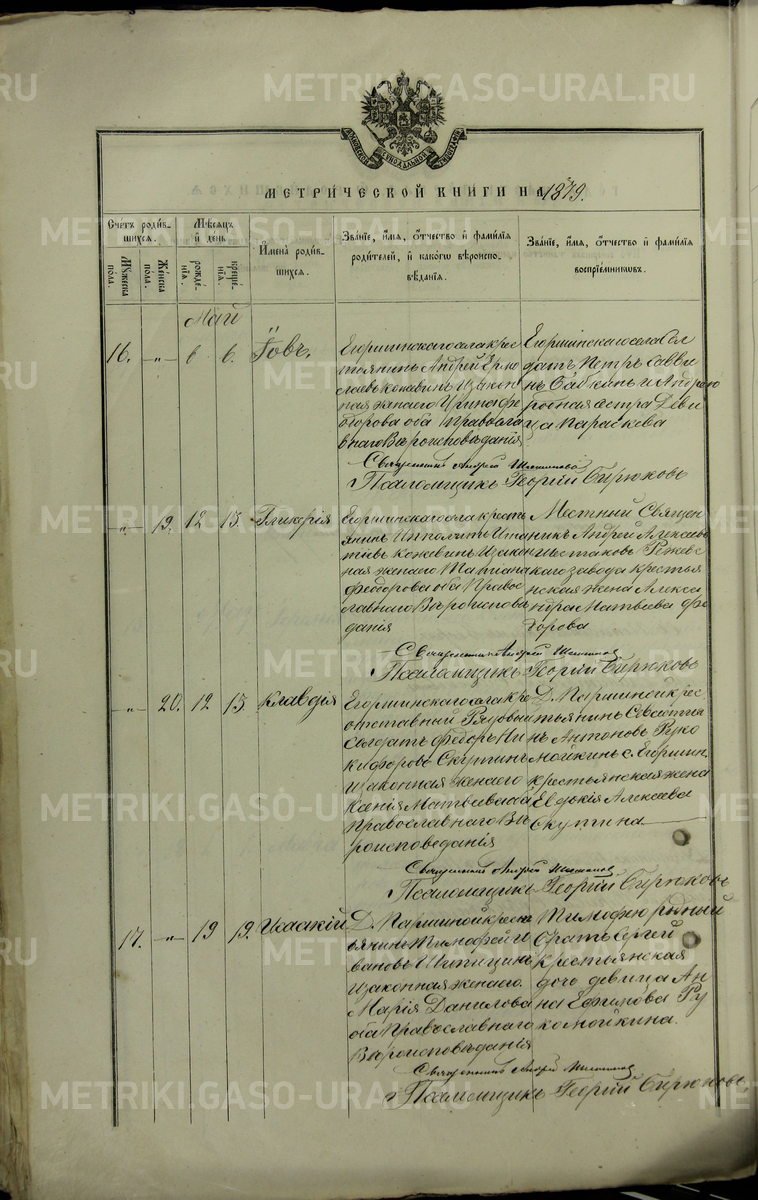 METRIKI.GASO-URAL.RU
МОСКОВСКОЙ СѴНОДАЛЬНОЙ ТИПОГРАФІИ
МЕТРИ́ЧЕСКОЙ КНИГИ НА 1879.
Счетъ роди́в-
шихся.
Мꙋжеска
пола.
Же́нска
пола.
Мѣ́сяцъ
и҆ день
рожде́-
нія.
креще́-
нія.
И҆мена̀ роди́в-
шихся.
Зва́ніе, и҆́мя, ѻ҆́тчество и҆ фами́лія
роди́телей, и҆ како́гѡ вѣроиспо-
вѣ́данія.
Зва́ніе, и҆́мя, ѻ҆́тчество и҆ фами́лія
воспріе́мниковъ.
Май
16. „ 6 6. Іовъ.
Егоршинскаго села крес
тьянинъ Андрей Ермо
лаевъ Кожевинъ и закон
ная жена его Ирина Фе
дорова оба Православ
наго Вѣроисповѣданія
Егоршинскаго села Сол
датъ Петръ Савви
нъ и Андрею
родная сестра Дѣви
ца Параскева
Священникъ Андрей Шестаковъ
Псаломщикъ Георгій Бирюковъ
„ 19. 12 13. Гликерія
Егоршинскаго села кресть
янинъ Ипполитъ Ипа
тіевъ Кожевинъ и закон
ная жена его Татіана
Федорова оба Правос
лавнаго Вѣроисповѣ
данія
Местный Священ
никъ Андрей Алексѣевъ
Шестаковъ Режевс
каго завода крестья
нская жена Алекса
ндра Матвеева Фе
дорова
Священникъ Андрей Шестаковъ
Псаломщикъ Георгій Бирюковъ
„ 20. 12 13 Клавдія
Егоршинскаго села
отставный Рядовой
Солдатъ Федоръ Ни
кифоровъ Скутинъ
и законная жена его
Ксенія Матвѣева оба
Православнаго Вѣ
роисповеданія
Д. Паршиной крес
тьянинъ Севастиа
нъ Антоновъ Руко
мойкинъ с. Егоршин.
крестьянская жена
Евдокія Алексѣева
Скутина
Священникъ Андрей Шестаковъ
Псаломщикъ Георгій Бирюковъ
17. „ 19 19. Исаакій
Д. Паршиной кресть
янинъ Тимофей И
вановъ Шипицинъ
и законная жена его
Марія Данилова
оба Православнаго
Вѣроисповѣданія
Тимофею родный
братъ Сергей
крестьянская
дочь девица Ан
на Ефимова Ру
комойкина.
Священникъ Андрей Шестаковъ
Псаломщикъ Георгій Бирюковъ